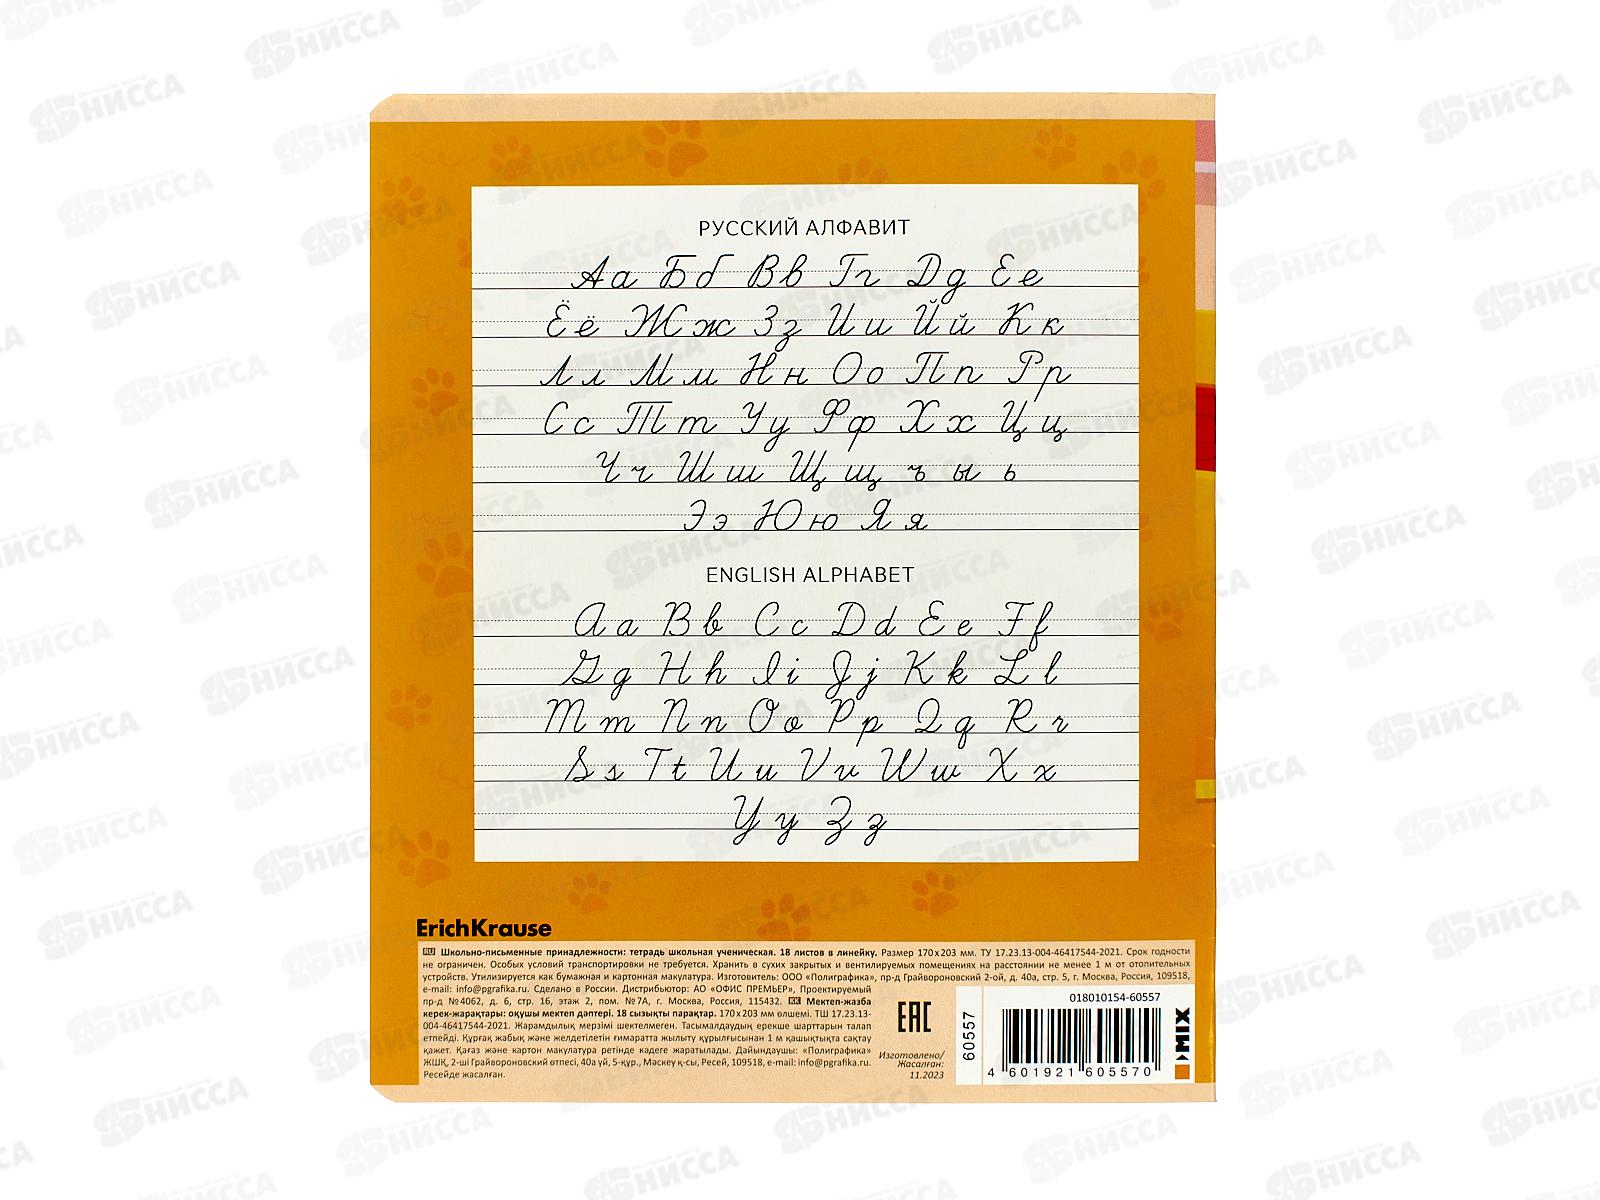 РУССКИЙ АЛФАВИТ
Аа Бб Вв Гг Дд Ее
Ёё Жж Зз Ии Йй Кк
Лл Мм Нн Оо Пп Рр
Сс Тт Уу Фф Хх Цц
Чч Шш Щщ ъ ы ь
Ээ Юю Яя
ENGLISH ALPHABET
Aa Bb Cc Dd Ee Ff
Gg Hh Ii Jj Kk Ll
Mm Nn Oo Pp Qq Rr
Ss Tt Uu Vv Ww Xx
Yy Zz
ErichKrause
RU Школьно-письменные принадлежности: тетрадь школьная ученическая. 18 листов в линейку. Размер 170х203 мм. ТУ 17.23.13-004-46417544-2021. Срок годности
не ограничен. Особых условий транспортировки не требуется. Хранить в сухих закрытых и вентилируемых помещениях на расстоянии не менее 1 м от отопительных
устройств. Утилизируется как бумажная и картонная макулатура. Изготовитель: ООО «Полиграфика», пр-д Грайвороновский 2-ой, д. 40а, стр. 5, г. Москва, Россия, 109518,
e-mail: info@pgrafika.ru. Сделано в России. Дистрибьютор: АО «ОФИС ПРЕМЬЕР», Проектируемый
пр-д №4062, д. 6, стр. 16, этаж 2, пом. №7А, г. Москва, Россия, 115432. KK Мектеп-жазба
керек-жарақтары: оқушы мектеп дәптері. 18 сызықты парақтар. 170х203 мм өлшемі. ТШ 17.23.13-
004-46417544-2021. Жарамдылық мерзімі шектелмеген. Тасымалдаудың ерекше шарттарын талап
етпейді. Құрғақ жабық және желдетілетін ғимаратта жылыту құрылғысынан 1 м қашықтықта сақтау
қажет. Қағаз және картон макулатура ретінде кәдеге жаратылады. Дайындаушы: «Полиграфика»
ЖШҚ, 2-ші Грайвороновский өтпесі, 40а үй, 5-құр., Мәскеу қ-сы, Ресей, 109518, e-mail: info@pgrafika.ru.
Ресейде жасалған.
EAC
Изготовлено/
Жасалған:
11.2023
60557
018010154-60557
4 601921 605570
MIX
НИССА